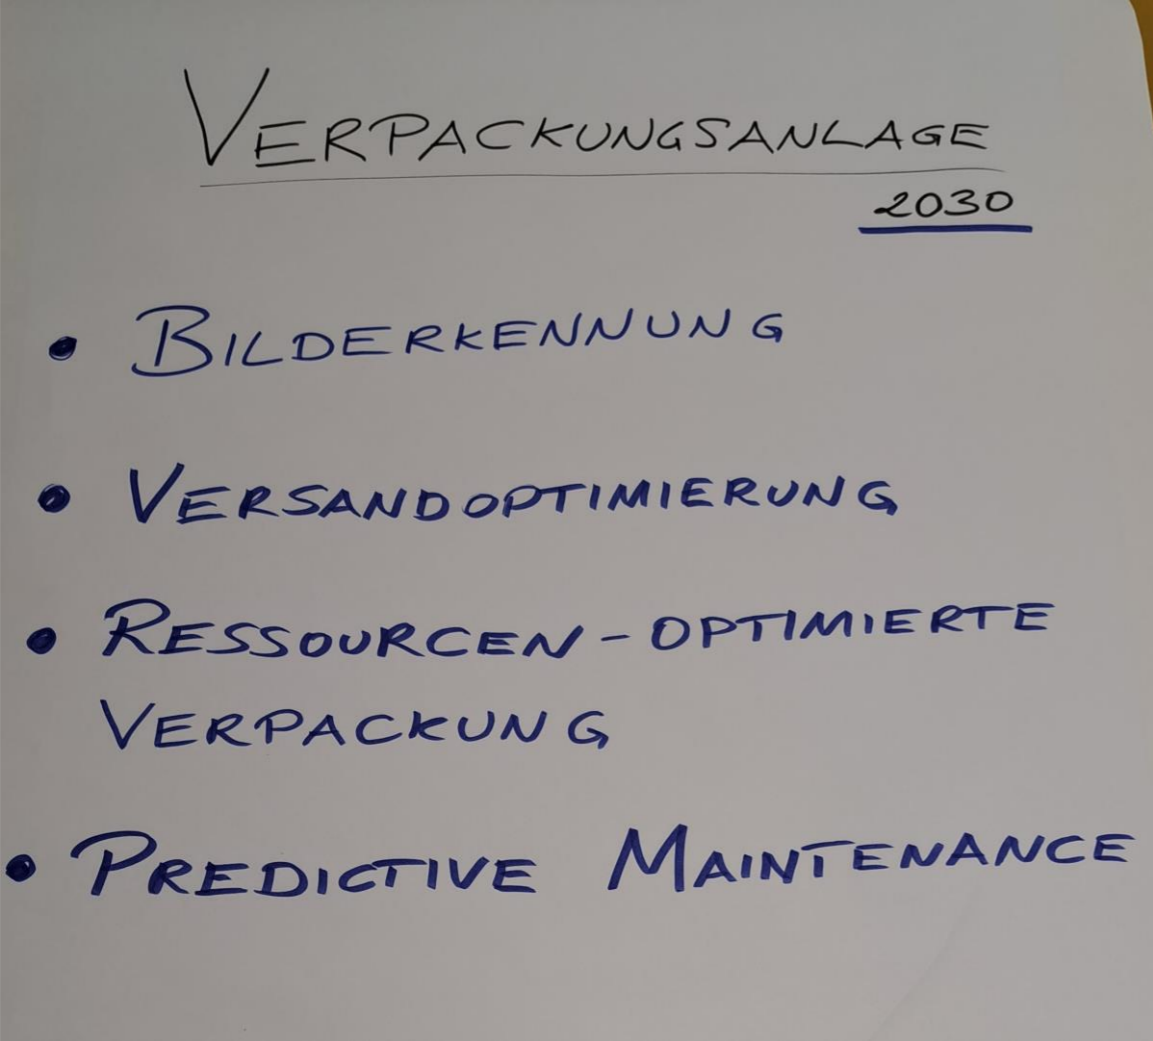 VERPACKUNGSANLAGE
2030
• BILDERKENNUNG
• VERSANDOPTIMIERUNG
• RESSOURCEN-OPTIMIERTE
VERPACKUNG
• PREDICTIVE MAINTENANCE